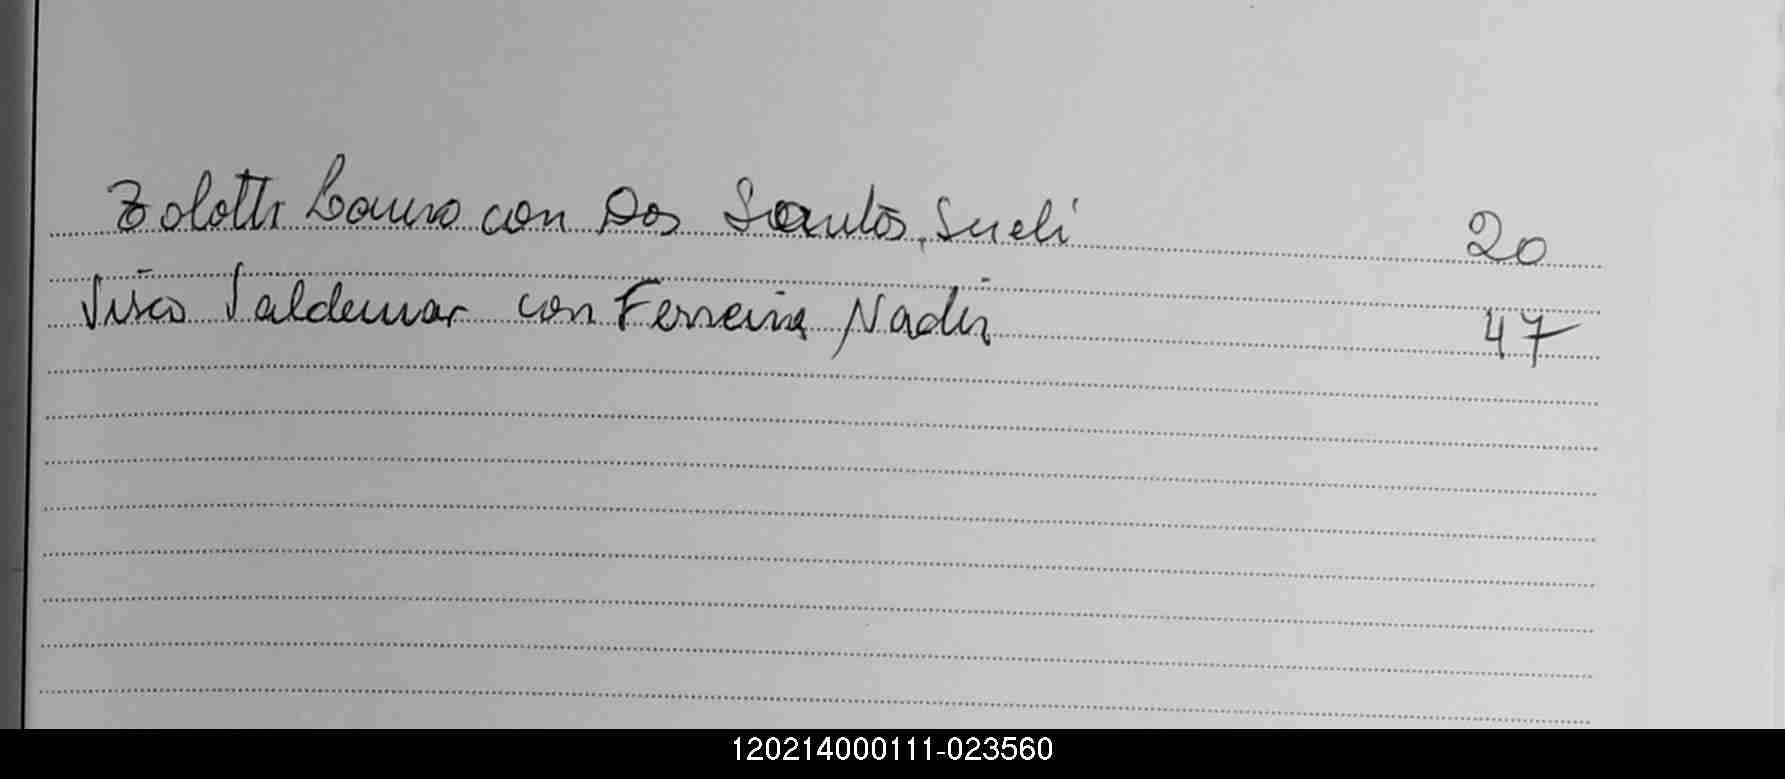 Zolotti Lauro con Dos Santos, Sueli 20
Valdemar con Ferreira Nadir 47
120214000111-023560